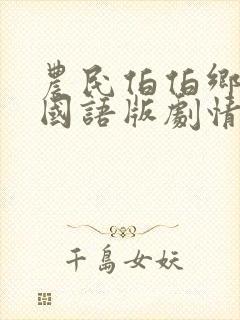 農民伯伯鄉
國語版劇情
千島女妖